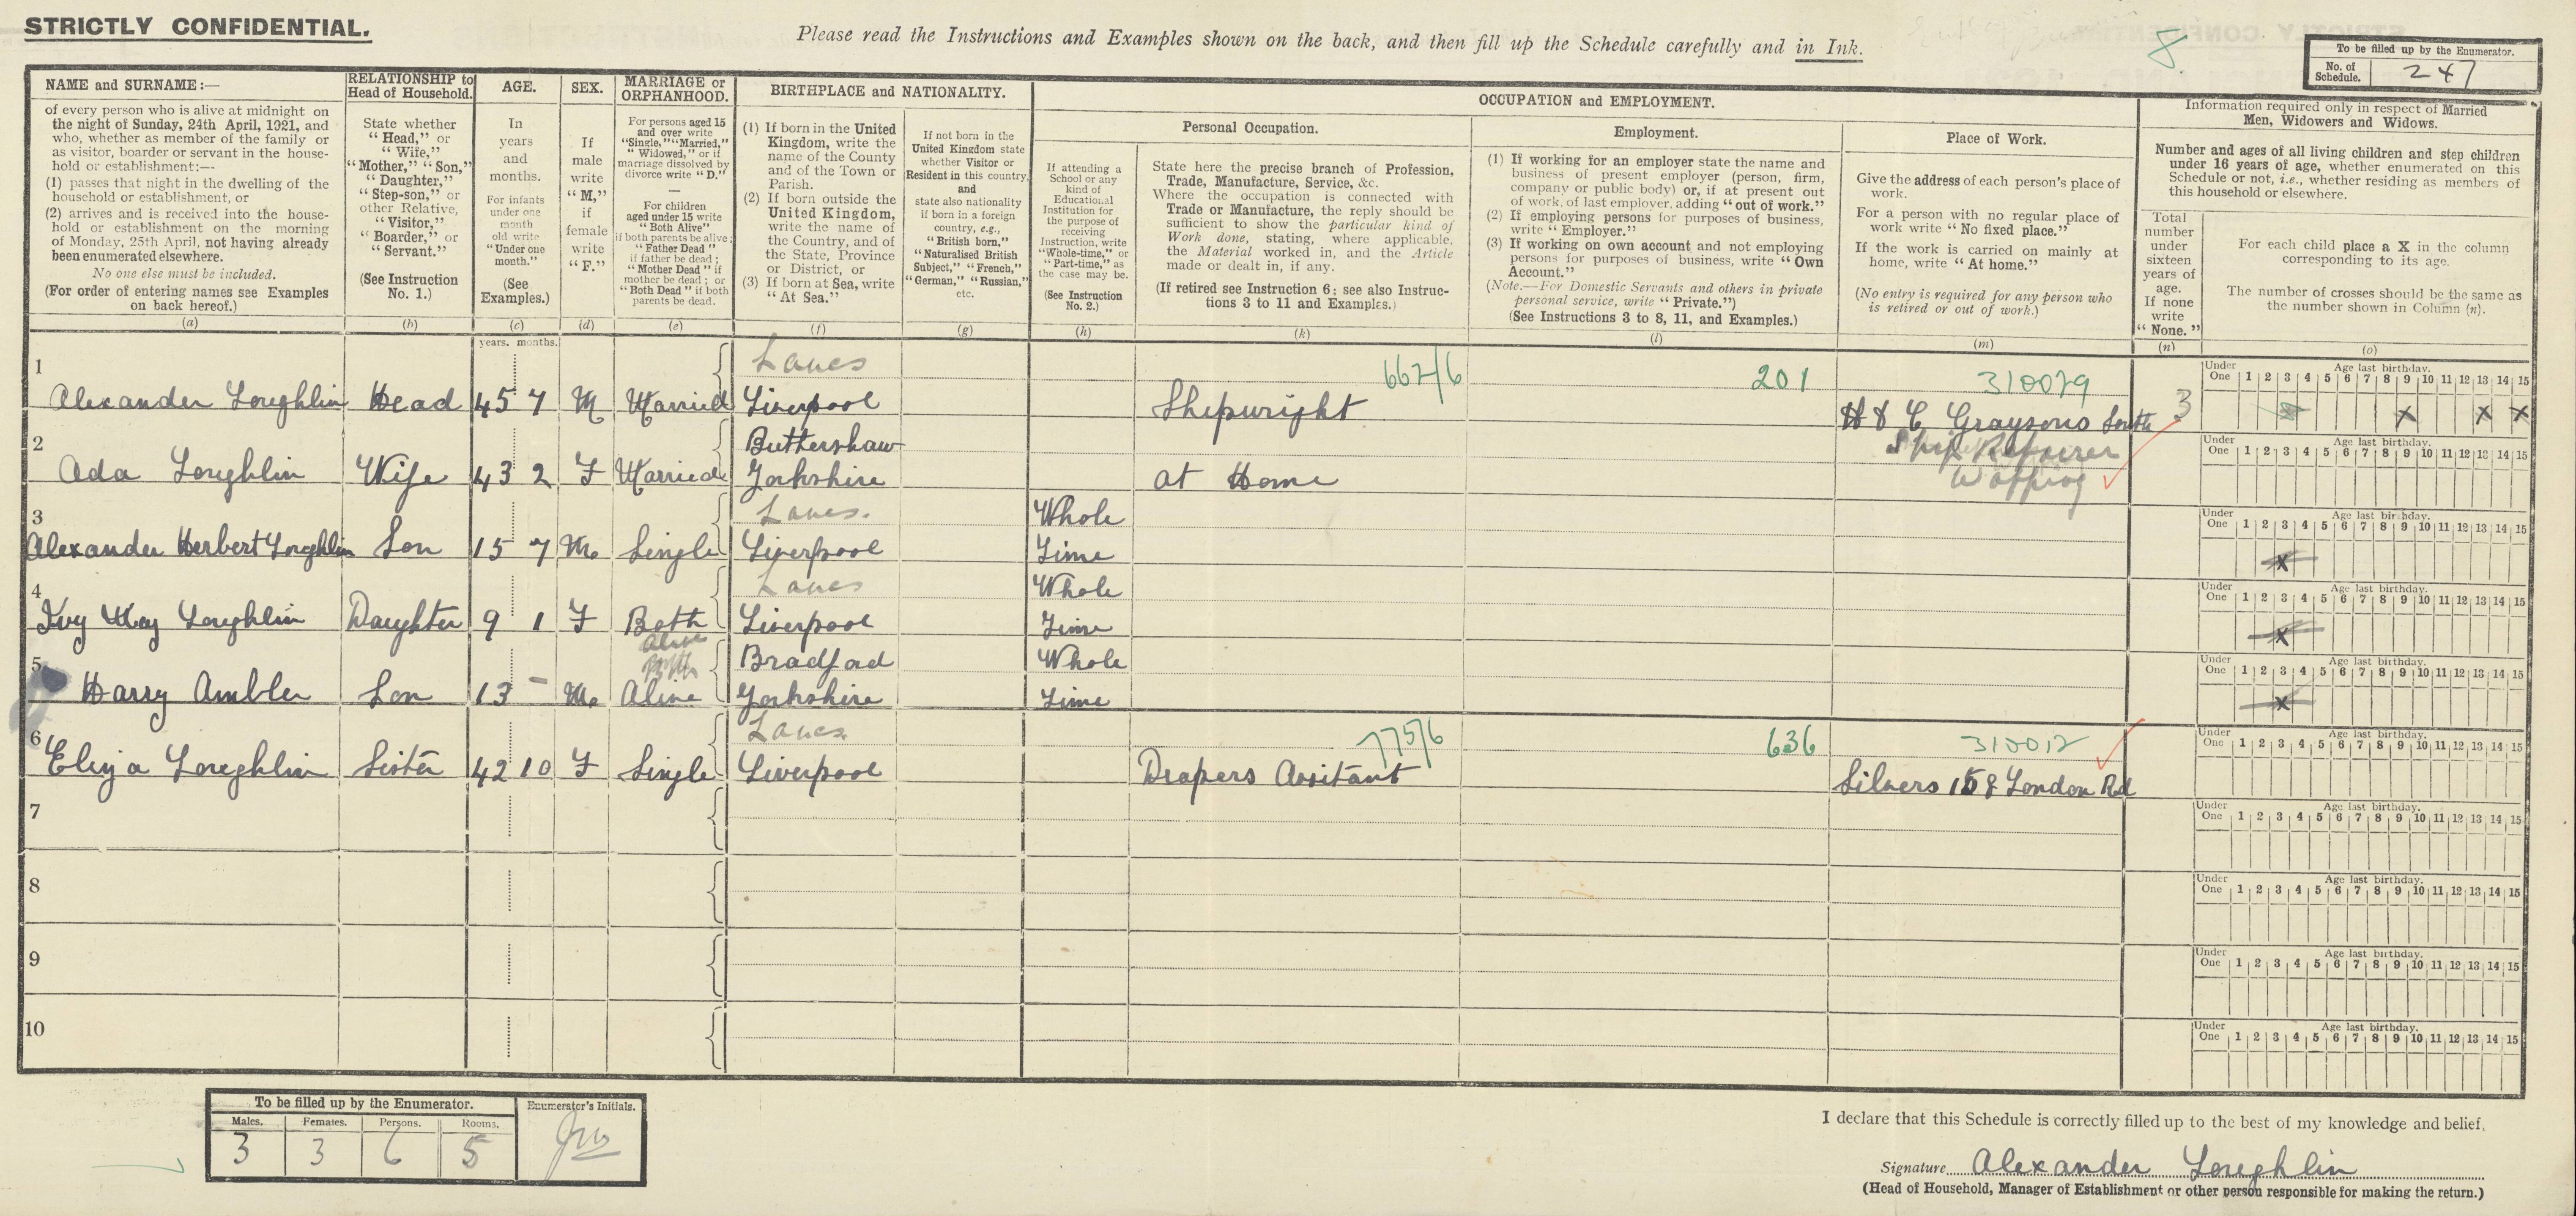 STRICTLY CONFIDENTIAL.
Please read the Instructions and Examples shown on the back, and then fill up the Schedule carefully and in Ink.
8
To be filled up by the Enumerator.
No. of Schedule. 247
NAME and SURNAME:—
of every person who is alive at midnight on
the night of Sunday, 24th April, 1921, and
who, whether as member of the family or
as visitor, boarder or servant in the house-
hold or establishment:—
(1) passes that night in the dwelling of the
household or establishment, or
(2) arrives and is received into the house-
hold or establishment on the morning
of Monday, 25th April, not having already
been enumerated elsewhere.
No one else must be included.
(For order of entering names see Examples
on back hereof.)
(a)
RELATIONSHIP to
Head of Household.
State whether
"Head," or
"Wife,"
"Mother," "Son,"
"Daughter,"
"Step-son," or
other Relative,
"Visitor,"
"Boarder," or
"Servant."
(See Instruction
No. 1.)
(b)
AGE.
In
years
and
months.
For infants
under one
month
old write
"Under one
month."
(See
Examples.)
(c)
SEX.
If
male
write
"M,"
if
female
write
"F."
(d)
MARRIAGE or
ORPHANHOOD.
For persons aged 15
and over write
"Single," "Married,"
"Widowed," or if
marriage dissolved by
divorce write "D."
—
For children
aged under 15 write
"Both Alive"
if both parents be alive;
"Father Dead"
if father be dead;
"Mother Dead" if
mother be dead; or
"Both Dead" if both
parents be dead.
(e)
BIRTHPLACE and NATIONALITY.
(1) If born in the United
Kingdom, write the
name of the County
and of the Town or
Parish.
(2) If born outside the
United Kingdom,
write the name of
the Country, and of
the State, Province
or District, or
(3) If born at Sea, write
"At Sea."
(f)
If not born in the
United Kingdom state
whether Visitor or
Resident in this country,
and
state also nationality
if born in a foreign
country, e.g.,
"British born,"
"Naturalised British
Subject," "French,"
"German," "Russian,"
etc.
(g)
OCCUPATION and EMPLOYMENT.
Personal Occupation.
If attending a
School or any
kind of
Educational
Institution for
the purpose of
receiving
Instruction, write
"Whole-time," or
"Part-time," as
the case may be.
(See Instruction
No. 2.)
(h)
State here the precise branch of Profession,
Trade, Manufacture, Service, &c.
Where the occupation is connected with
Trade or Manufacture, the reply should be
sufficient to show the particular kind of
Work done, stating, where applicable,
the Material worked in, and the Article
made or dealt in, if any.
(If retired see Instruction 6; see also Instruc-
tions 3 to 11 and Examples.)
(k)
Employment.
(1) If working for an employer state the name and
business of present employer (person, firm,
company or public body) or, if at present out
of work, of last employer, adding "out of work."
(2) If employing persons for purposes of business,
write "Employer."
(3) If working on own account and not employing
persons for purposes of business, write "Own
Account."
(Note.—For Domestic Servants and others in private
personal service, write "Private.")
(See Instructions 3 to 8, 11, and Examples.)
(l)
Place of Work.
Give the address of each person's place of
work.
For a person with no regular place of
work write "No fixed place."
If the work is carried on mainly at
home, write "At home."
(No entry is required for any person who
is retired or out of work.)
(m)
Information required only in respect of Married
Men, Widowers and Widows.
Number and ages of all living children and step children
under 16 years of age, whether enumerated on this
Schedule or not, i.e., whether residing as members of
this household or elsewhere.
Total
number
under
sixteen
years of
age.
If none
write
"None."
(n)
For each child place a X in the column
corresponding to its age.
The number of crosses should be the same as
the number shown in Column (n).
(o)
years. months.
Under One
Age last birthday.
1 2 3 4 5 6 7 8 9 10 11 12 13 14 15
1
Lancs
662/6 201 310079
Alexander Loughlin Head 45 7 M Married Liverpool Shipwright H & C Graysons South 3 X X X
2
Buttershaw
Ship Repairer
Under One
Age last birthday.
1 2 3 4 5 6 7 8 9 10 11 12 13 14 15
Ada Loughlin Wife 43 2 F Married Yorkshire at Home Wapping
3
Lancs. Whole
Under One
Age last birthday.
1 2 3 4 5 6 7 8 9 10 11 12 13 14 15
Alexander Herbert Loughlin Son 15 7 M. Single Liverpool Time X
4
Lancs Whole
Under One
Age last birthday.
1 2 3 4 5 6 7 8 9 10 11 12 13 14 15
Ivy May Loughlin Daughter 9 1 F Both Liverpool Time X
Alive
5
Both Bradford Whole
Under One
Age last birthday.
1 2 3 4 5 6 7 8 9 10 11 12 13 14 15
Harry Ambler Son 13 – M. Alive Yorkshire Time X
6
Lancs. 775/6 636 310012
Under One
Age last birthday.
1 2 3 4 5 6 7 8 9 10 11 12 13 14 15
Eliza Loughlin Sister 42 10 F Single Liverpool Drapers Assitant Silvers 158 London Rd
7
Under One
Age last birthday.
1 2 3 4 5 6 7 8 9 10 11 12 13 14 15
8
Under One
Age last birthday.
1 2 3 4 5 6 7 8 9 10 11 12 13 14 15
9
Under One
Age last birthday.
1 2 3 4 5 6 7 8 9 10 11 12 13 14 15
10
Under One
Age last birthday.
1 2 3 4 5 6 7 8 9 10 11 12 13 14 15
To be filled up by the Enumerator.
Enumerator's Initials.
Males. Females. Persons. Rooms.
3 3 6 5
I declare that this Schedule is correctly filled up to the best of my knowledge and belief.
Signature Alexander Loughlin
(Head of Household, Manager of Establishment or other person responsible for making the return.)